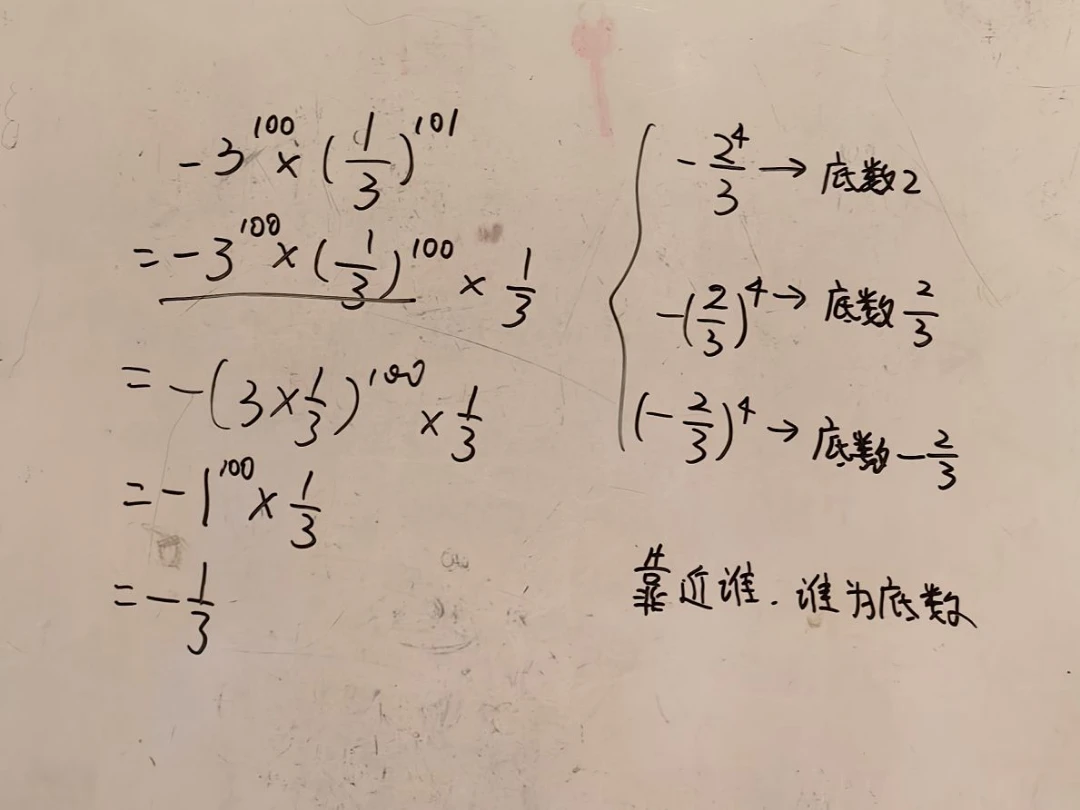 -3^100 × (1/3)^101
= -3^100 × (1/3)^100 × 1/3
= -(3×1/3)^100 × 1/3
= -1^100 × 1/3
= -1/3
-2^4/3 → 底数2
-(2/3)^4 → 底数 2/3
(-2/3)^4 → 底数 -2/3
靠近谁.谁为底数